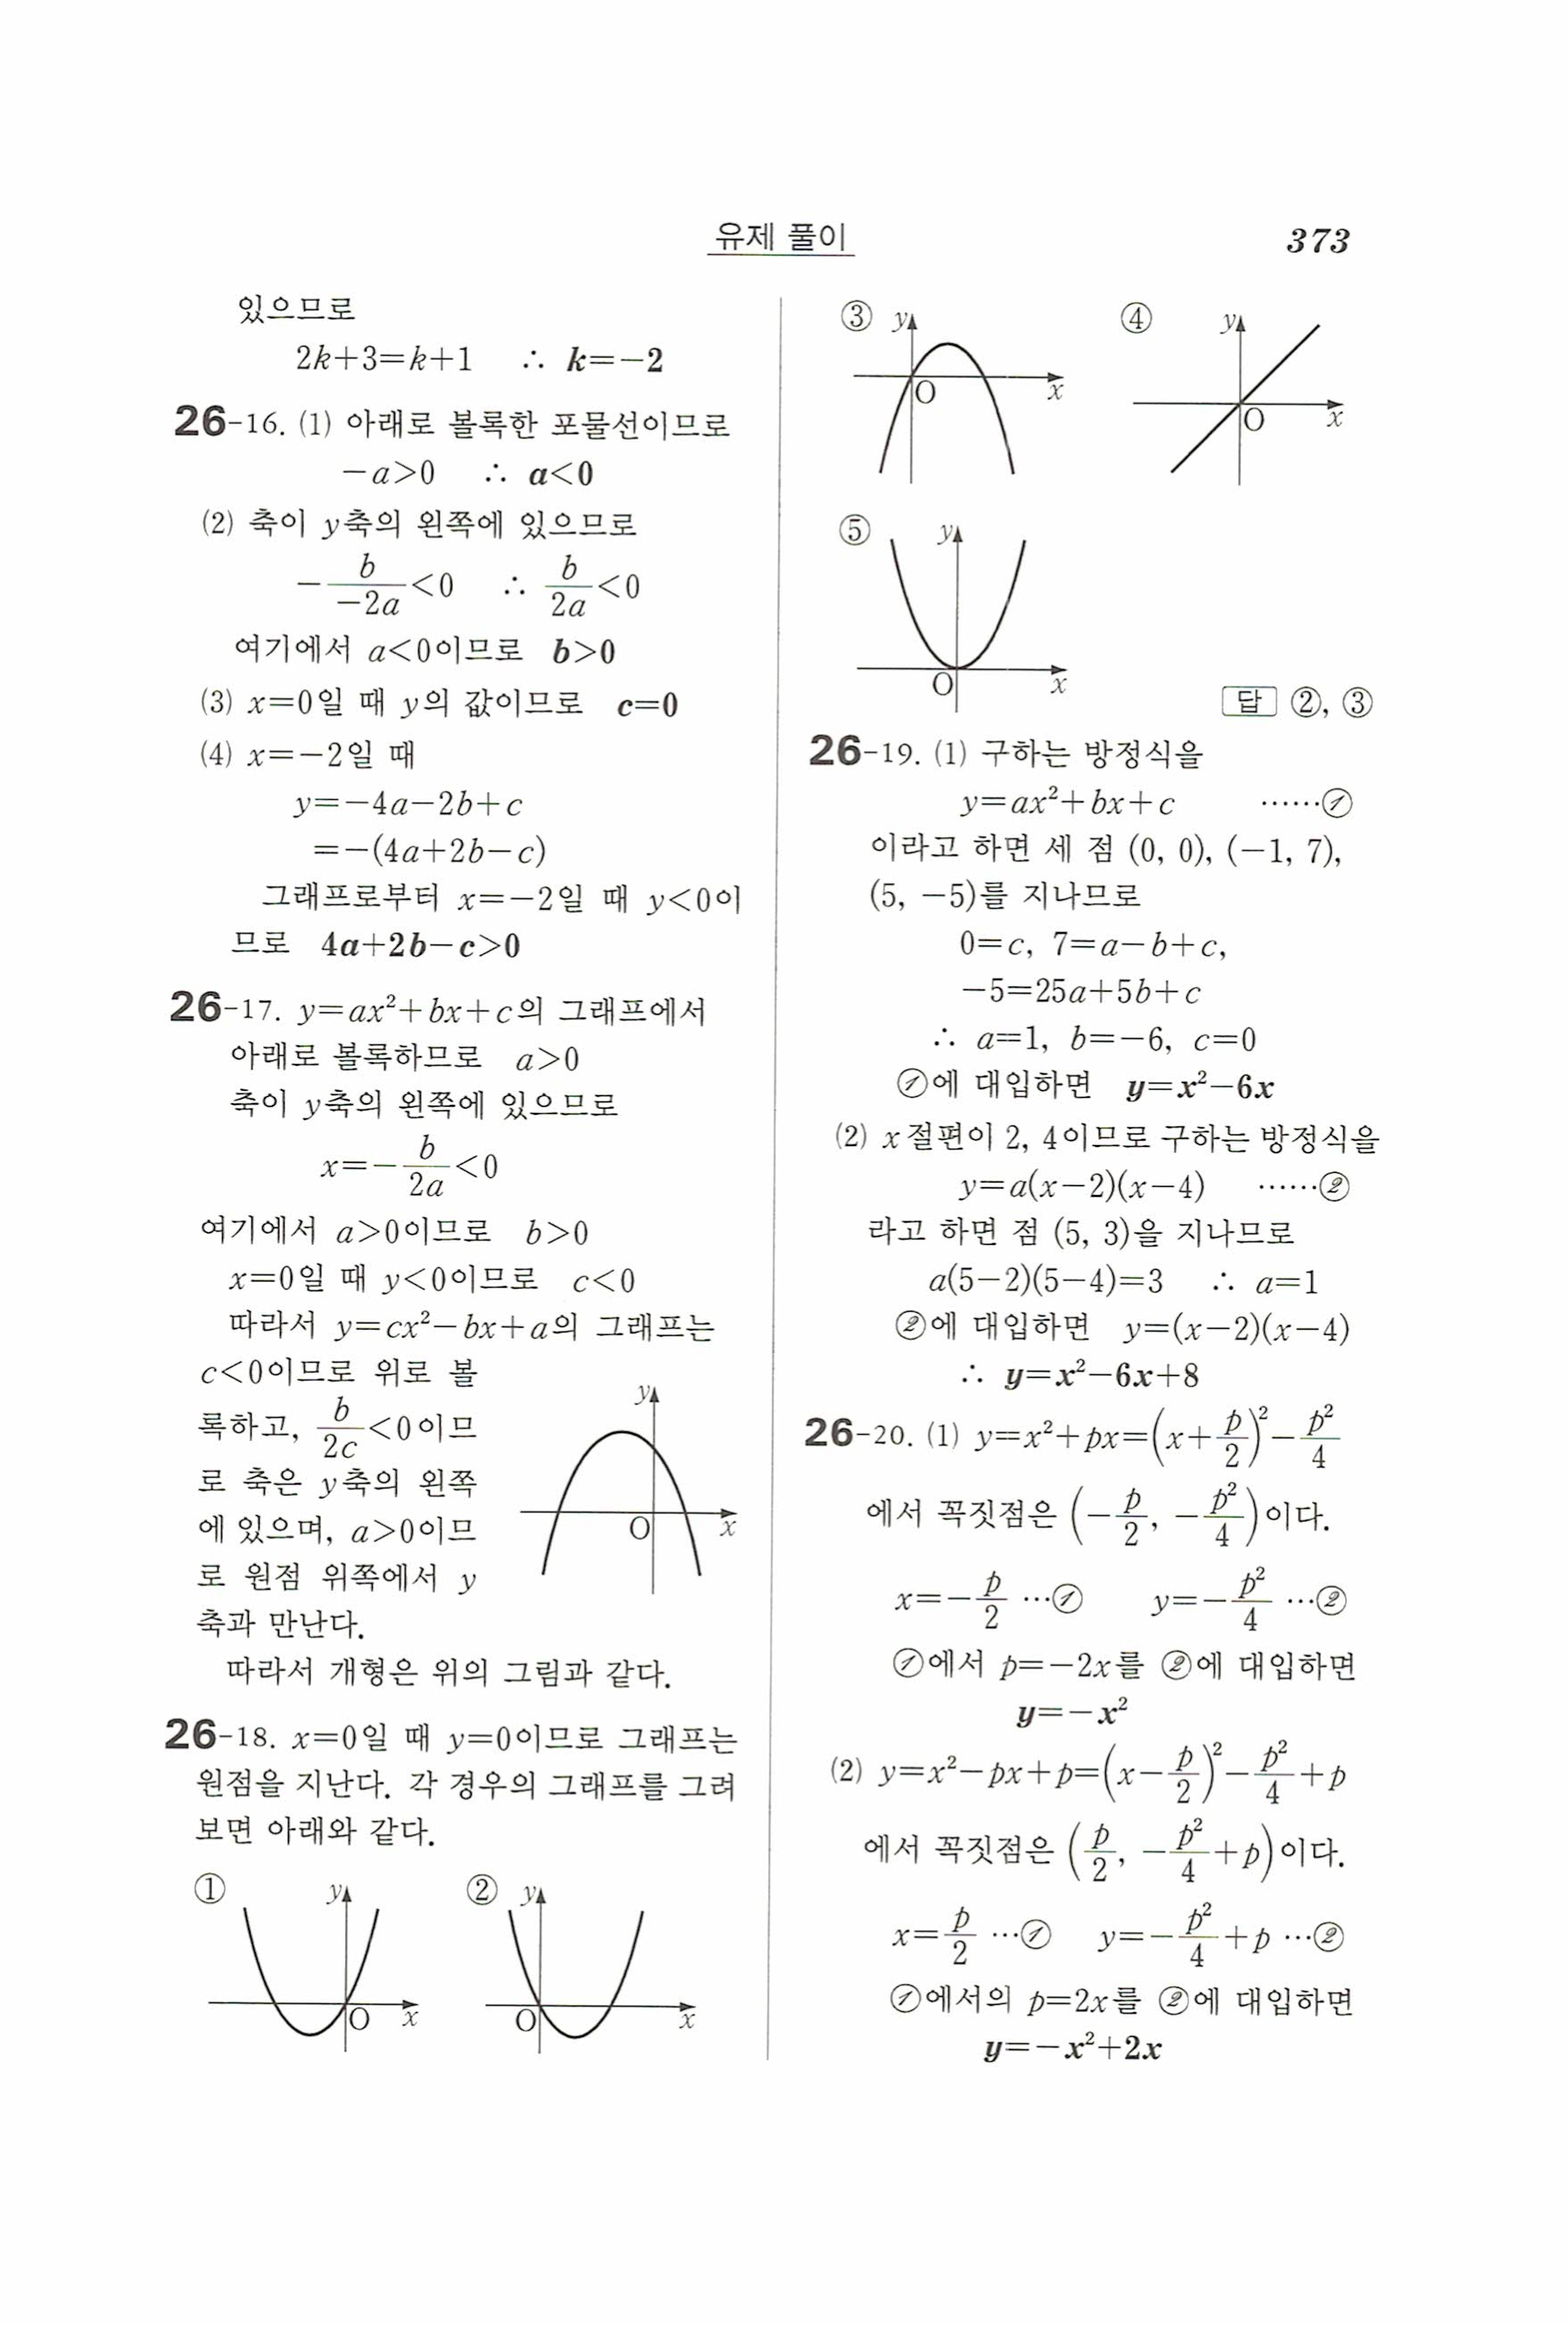 유제 풀이
373
있으므로
2k+3=k+1 ∴ k=−2
26-16. (1) 아래로 볼록한 포물선이므로
−a>0 ∴ a<0
(2) 축이 y축의 왼쪽에 있으므로
−b/(−2a)<0 ∴ b/(2a)<0
여기에서 a<0이므로 b>0
(3) x=0일 때 y의 값이므로 c=0
(4) x=−2일 때
y=−4a−2b+c
=−(4a+2b−c)
그래프로부터 x=−2일 때 y<0이
므로 4a+2b−c>0
26-17. y=ax²+bx+c의 그래프에서
아래로 볼록하므로 a>0
축이 y축의 왼쪽에 있으므로
x=−b/(2a)<0
여기에서 a>0이므로 b>0
x=0일 때 y<0이므로 c<0
따라서 y=cx²−bx+a의 그래프는
c<0이므로 위로 볼
록하고, b/(2c)<0이므
로 축은 y축의 왼쪽
에 있으며, a>0이므
로 원점 위쪽에서 y
축과 만난다.
y
O
x
따라서 개형은 위의 그림과 같다.
26-18. x=0일 때 y=0이므로 그래프는
원점을 지난다. 각 경우의 그래프를 그려
보면 아래와 같다.
① y ② y
O x O x
③ y ④ y
O x O x
⑤ y
O x
답 ②, ③
26-19. (1) 구하는 방정식을
y=ax²+bx+c ……①
이라고 하면 세 점 (0, 0), (−1, 7),
(5, −5)를 지나므로
0=c, 7=a−b+c,
−5=25a+5b+c
∴ a=1, b=−6, c=0
①에 대입하면 y=x²−6x
(2) x절편이 2, 4이므로 구하는 방정식을
y=a(x−2)(x−4) ……②
라고 하면 점 (5, 3)을 지나므로
a(5−2)(5−4)=3 ∴ a=1
②에 대입하면 y=(x−2)(x−4)
∴ y=x²−6x+8
26-20. (1) y=x²+px=(x+p/2)²−p²/4
에서 꼭짓점은 (−p/2, −p²/4)이다.
x=−p/2 …① y=−p²/4 …②
①에서 p=−2x를 ②에 대입하면
y=−x²
(2) y=x²−px+p=(x−p/2)²−p²/4+p
에서 꼭짓점은 (p/2, −p²/4+p)이다.
x=p/2 …① y=−p²/4+p …②
①에서의 p=2x를 ②에 대입하면
y=−x²+2x